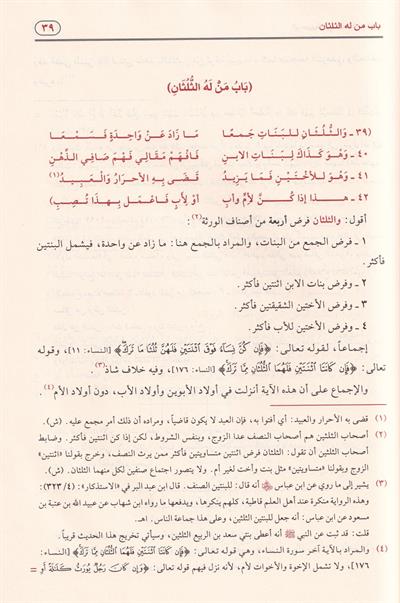 باب من له الثلثان
٣٩
(بَابُ مَنْ لَهُ الثُّلُثَانِ)
(٣٩ـ وَالثُّلُثَانِ لِلبَنَاتِ جَمعًا مَا زَادَ عَنْ وَاحِدَةٍ فَسَمْعَا
٤٠ـ وَهْوَ كَذَاكَ لِبَنَاتِ الابنِ فَافْهَمْ مَقَالِي فَهْمَ صَافِي الذِّهْنِ
٤١ـ وَهْوَ لِلأُخْتَيْنِ فَمَا يَزِيدُ قَضَى بِهِ الأحرَارُ وَالْعَبِيدُ(١)
٤٢ـ هـذا إذا كُنَّ لأمٍّ وأبِ أوْ لِأَبٍ فَاعْمَلْ بِهذا تُصِبِ)
أقول: والثلثان فرض أربعة من أصناف الورثة(٢):
١ ـ فرض الجمع من البنات، والمراد بالجمع هنا: ما زاد عن واحدة، فيشمل البنتين
فأكثر.
٢ ـ وفرض بنات الابن اثنتين فأكثر.
٣ ـ وفرض الأختين الشقيقتين فأكثر.
٤ ـ وفرض الأختين للأب فأكثر.
إجماعاً، لقوله تعالى: ﴿فَإِن كُنَّ نِسَآءً فَوْقَ ٱثْنَتَيْنِ فَلَهُنَّ ثُلُثَا مَا تَرَكَ﴾ [النساء: ١١]، وقوله
تعالى: ﴿فَإِن كَانَتَا ٱثْنَتَيْنِ فَلَهُمَا ٱلثُّلُثَانِ مِمَّا تَرَكَ﴾ [النساء: ١٧٦]، وفيه خلاف شاذ(٣).
والإجماع على أن هذه الآية أنزلت في أولاد الأبوين وأولاد الأب، دون أولاد الأم(٤).
(١) قضى به الأحرار والعبيد: أي أفتوا به، فإن العبد لا يكون قاضياً، ومراده أن ذلك أمر مجمع عليه. (ش).
(٢) أصحاب الثلثين هم أصحاب النصف عدا الزوج، وبنفس الشروط، لكن إذا كن اثنتين فأكثر. وضابط
أصحاب الثلثين أن تقول: الثلثان فرض اثنتين متساويتين فأكثر ممن يرث النصف، وخرج بقولنا «اثنتين»
الزوج وبقولنا «متساويتين» مثل بنت وأخت لغير أم. ولا يتصور اجتماع صنفين لكل منهما الثلثان. (ش).
(٣) يشير إلى ما روي عن ابن عباس ﷺ أنه قال: للبنتين النصف. قال ابن عبد البر في «الاستذكار»: (٣٢٣/٤)
وهذه الرواية منكرة عند أهل العلم قاطبة، كلهم ينكرها، ويدفعها ما رواه ابن شهاب عن عبيد الله بن عتبة بن
مسعود عن ابن عباس: أنه جعل للبنتين الثلثين، وعلى هذا جماعة الناس. اهـ.
قلت: قد ثبت عن النبي ﷺ أنه أعطى بنتي سعد بن الربيع الثلثين، وسيأتي تخريج هذا الحديث قريباً.
(٤) والمراد بالآية آخر سورة النساء، وهي قوله تعالى: ﴿فَإِن كَانَتَا ٱثْنَتَيْنِ فَلَهُمَا ٱلثُّلُثَانِ مِمَّا تَرَكَ﴾ [النساء:
١٧٦]، ولا تشمل الإخوة والأخوات لأم، لأنه نزل فيهم قوله تعالى: ﴿وَإِن كَانَ رَجُلٌ يُورَثُ كَلَـٰلَةً أَوِ =